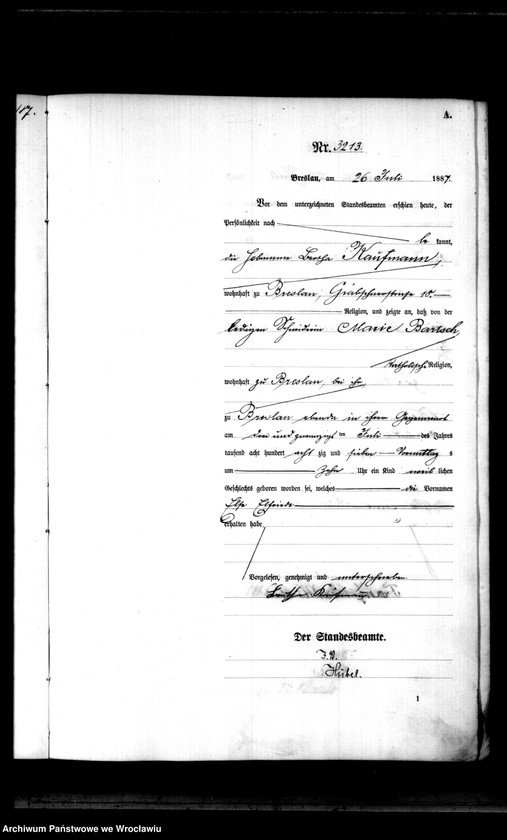 187.
A.
Nr. 3213.
Breslau, am 26 Juli 1887.
Vor dem unterzeichneten Standesbeamten erschien heute, der
Persönlichkeit nach
be kannt,
die Hebamme Bertha Kaufmann,
wohnhaft zu Breslau, Gräbschnerstraße 18.
Religion, und zeigte an, daß von der
ledigen Schneiderin Marie Bartsch,
katholischer Religion,
wohnhaft zu Breslau, bei ihr
zu Breslau ebenda in ihrer Gegenwart
am drei und zwanzigsten Juli des Jahres
tausend acht hundert acht zig und sieben Vormittag s
um Zehn Uhr ein Kind weib lichen
Geschlechts geboren worden sei, welches die Vornamen
Else Elfriede
erhalten habe
Vorgelesen, genehmigt und unterschrieben
Bertha Kaufmann
Der Standesbeamte.
J. V.
Hübel.
1
Archiwum Państwowe we Wrocławiu